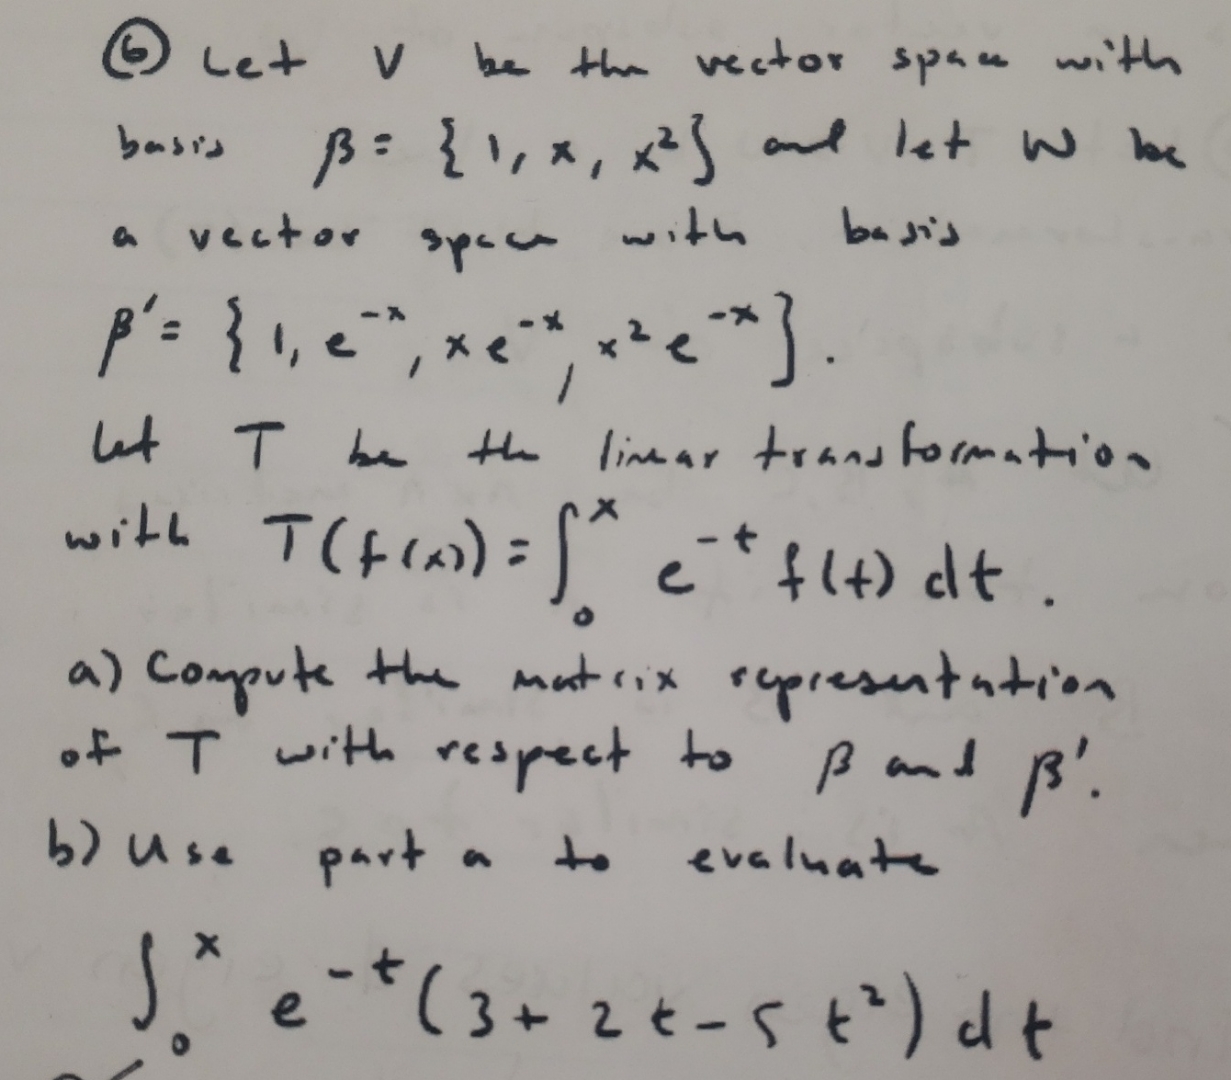 ⑥ Let V be the vector space with
basis β = {1, x, x²} and let W be
a vector space with basis
β' = {1, e^{-x}, xe^{-x}, x²e^{-x}}.
Let T be the linear transformation
with T(f(x)) = ∫₀ˣ e^{-t} f(t) dt.
a) Compute the matrix representation
of T with respect to β and β'.
b) Use part a to evaluate
∫₀ˣ e^{-t}(3 + 2t - 5t²) dt